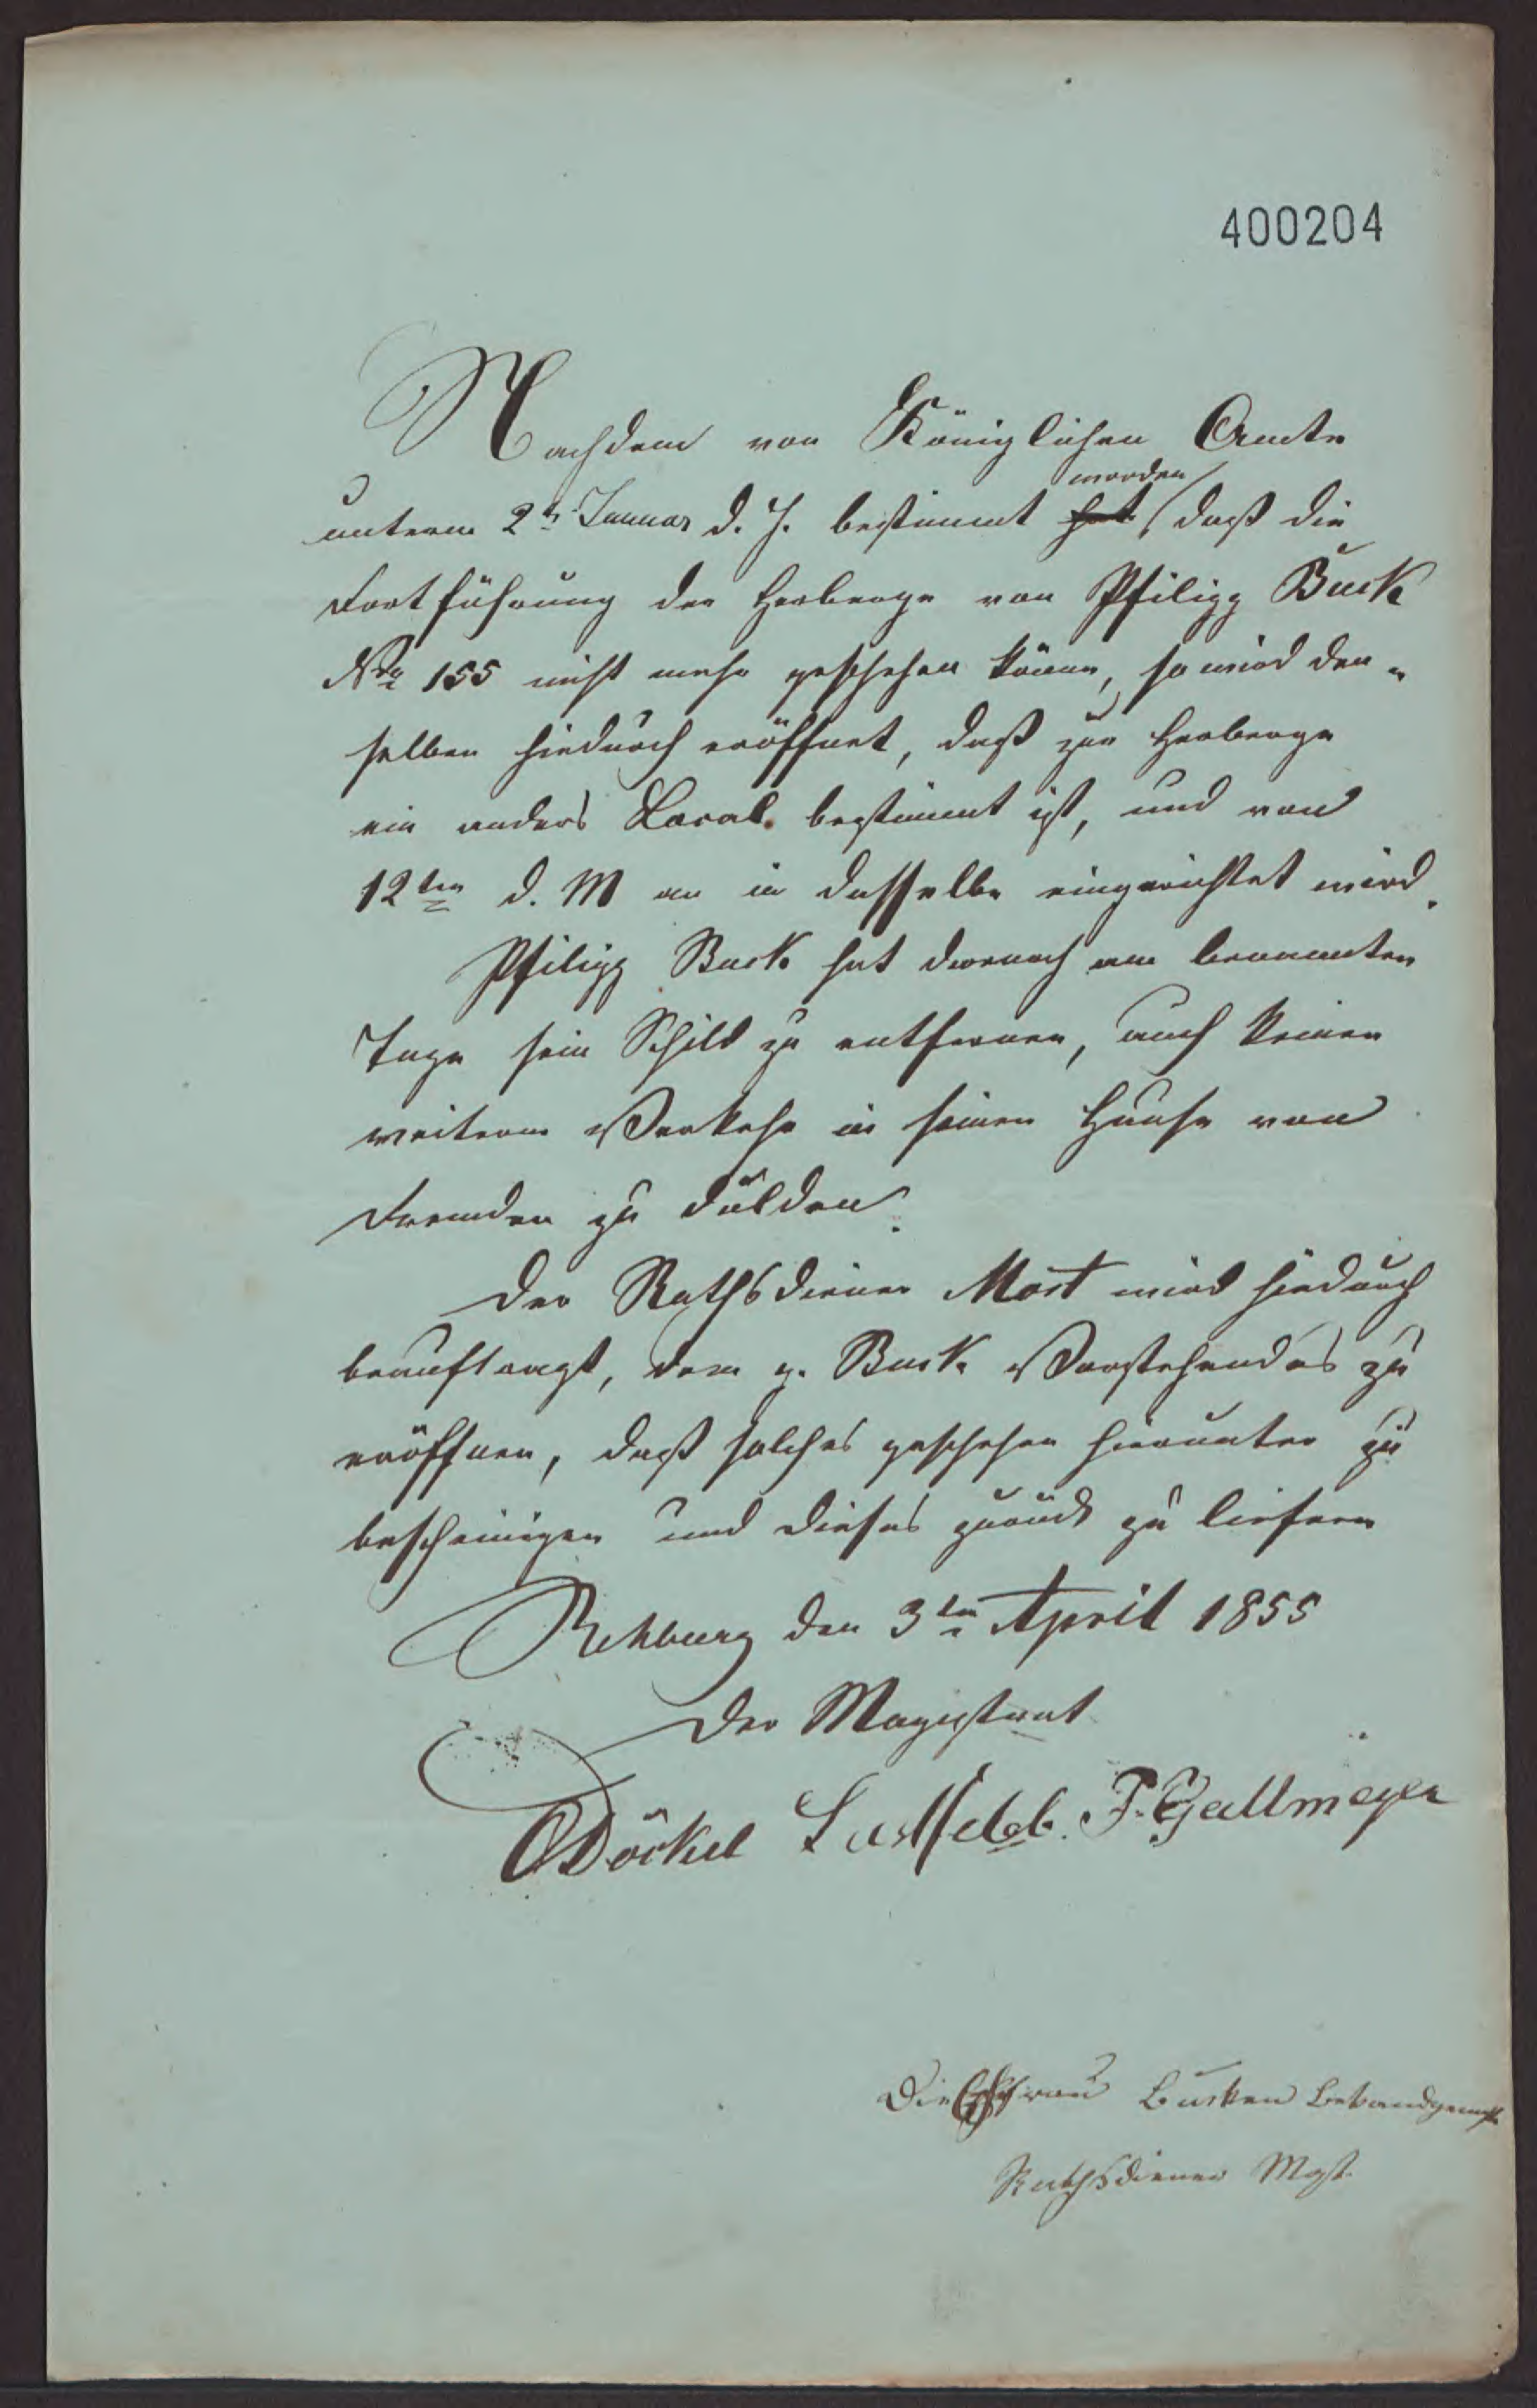 400204
Nachdem von Königlichen Amte
unterm 2ts Januar d. J. bestimmt hat worden daß die
Fortführung der Herberge von Philipp Buck
No 155 nicht mehr geschehen könne, so wird dem=
selben hiedurch eröffnet, daß zur Herberge
ein anders Local bestimmt ist, und vom
12ten d. M an in dasselbe eingerichtet wird.
Philipp Buck hat darnach am benannten
Tage sein Schild zu entfernen, auch keinen
weitern Verkehr in seinen Hause von
Fremden zu dulden.
Der Rathsdiener Most wird hiedurch
beauftragt, dem p. Buck Vorstehendes zu
eröffnen, daß solches geschehen hierunter zu
bescheinigen und dieses zurück zu liefern
Rehburg den 3ten April 1855
Der Magistrat
Döckel F. Gallmeyer
Die Ehfrau Bucken bekandgemacht
Rathsdiener Most